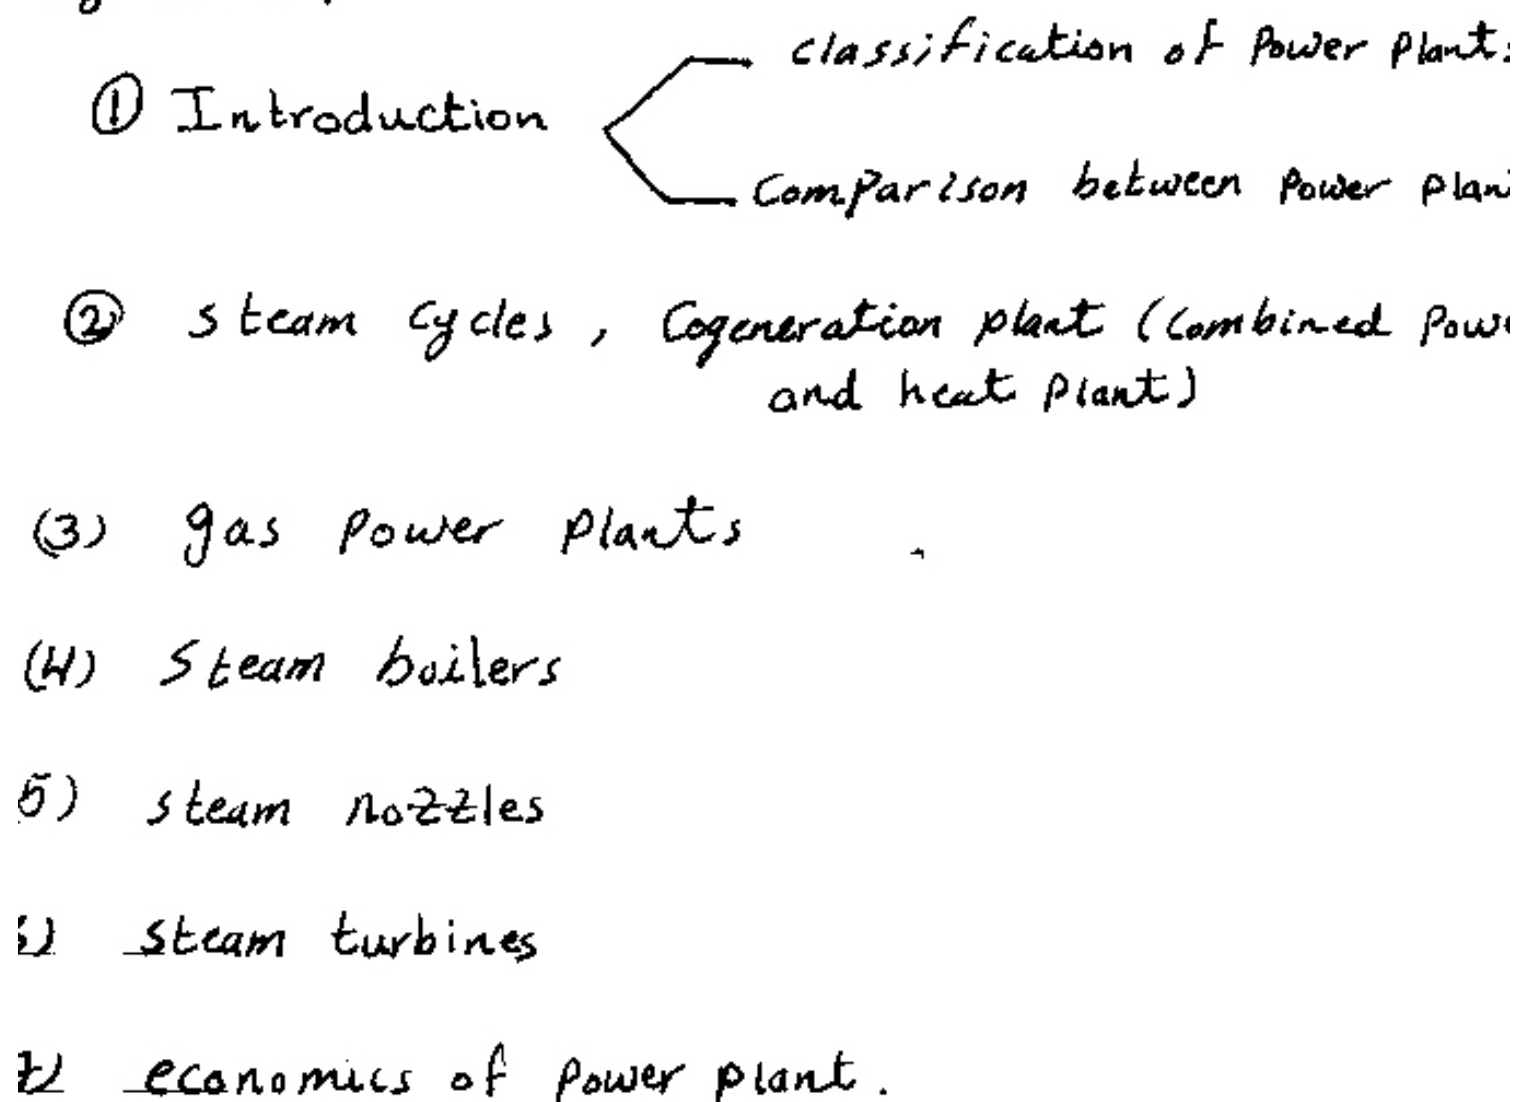 classification of Power Plants
① Introduction
Comparison between Power plan
② steam cycles, Cogeneration plant (Combined Powe
and heat Plant)
(3) gas Power Plants
(4) Steam boilers
5) steam nozzles
steam turbines
economics of Power plant.